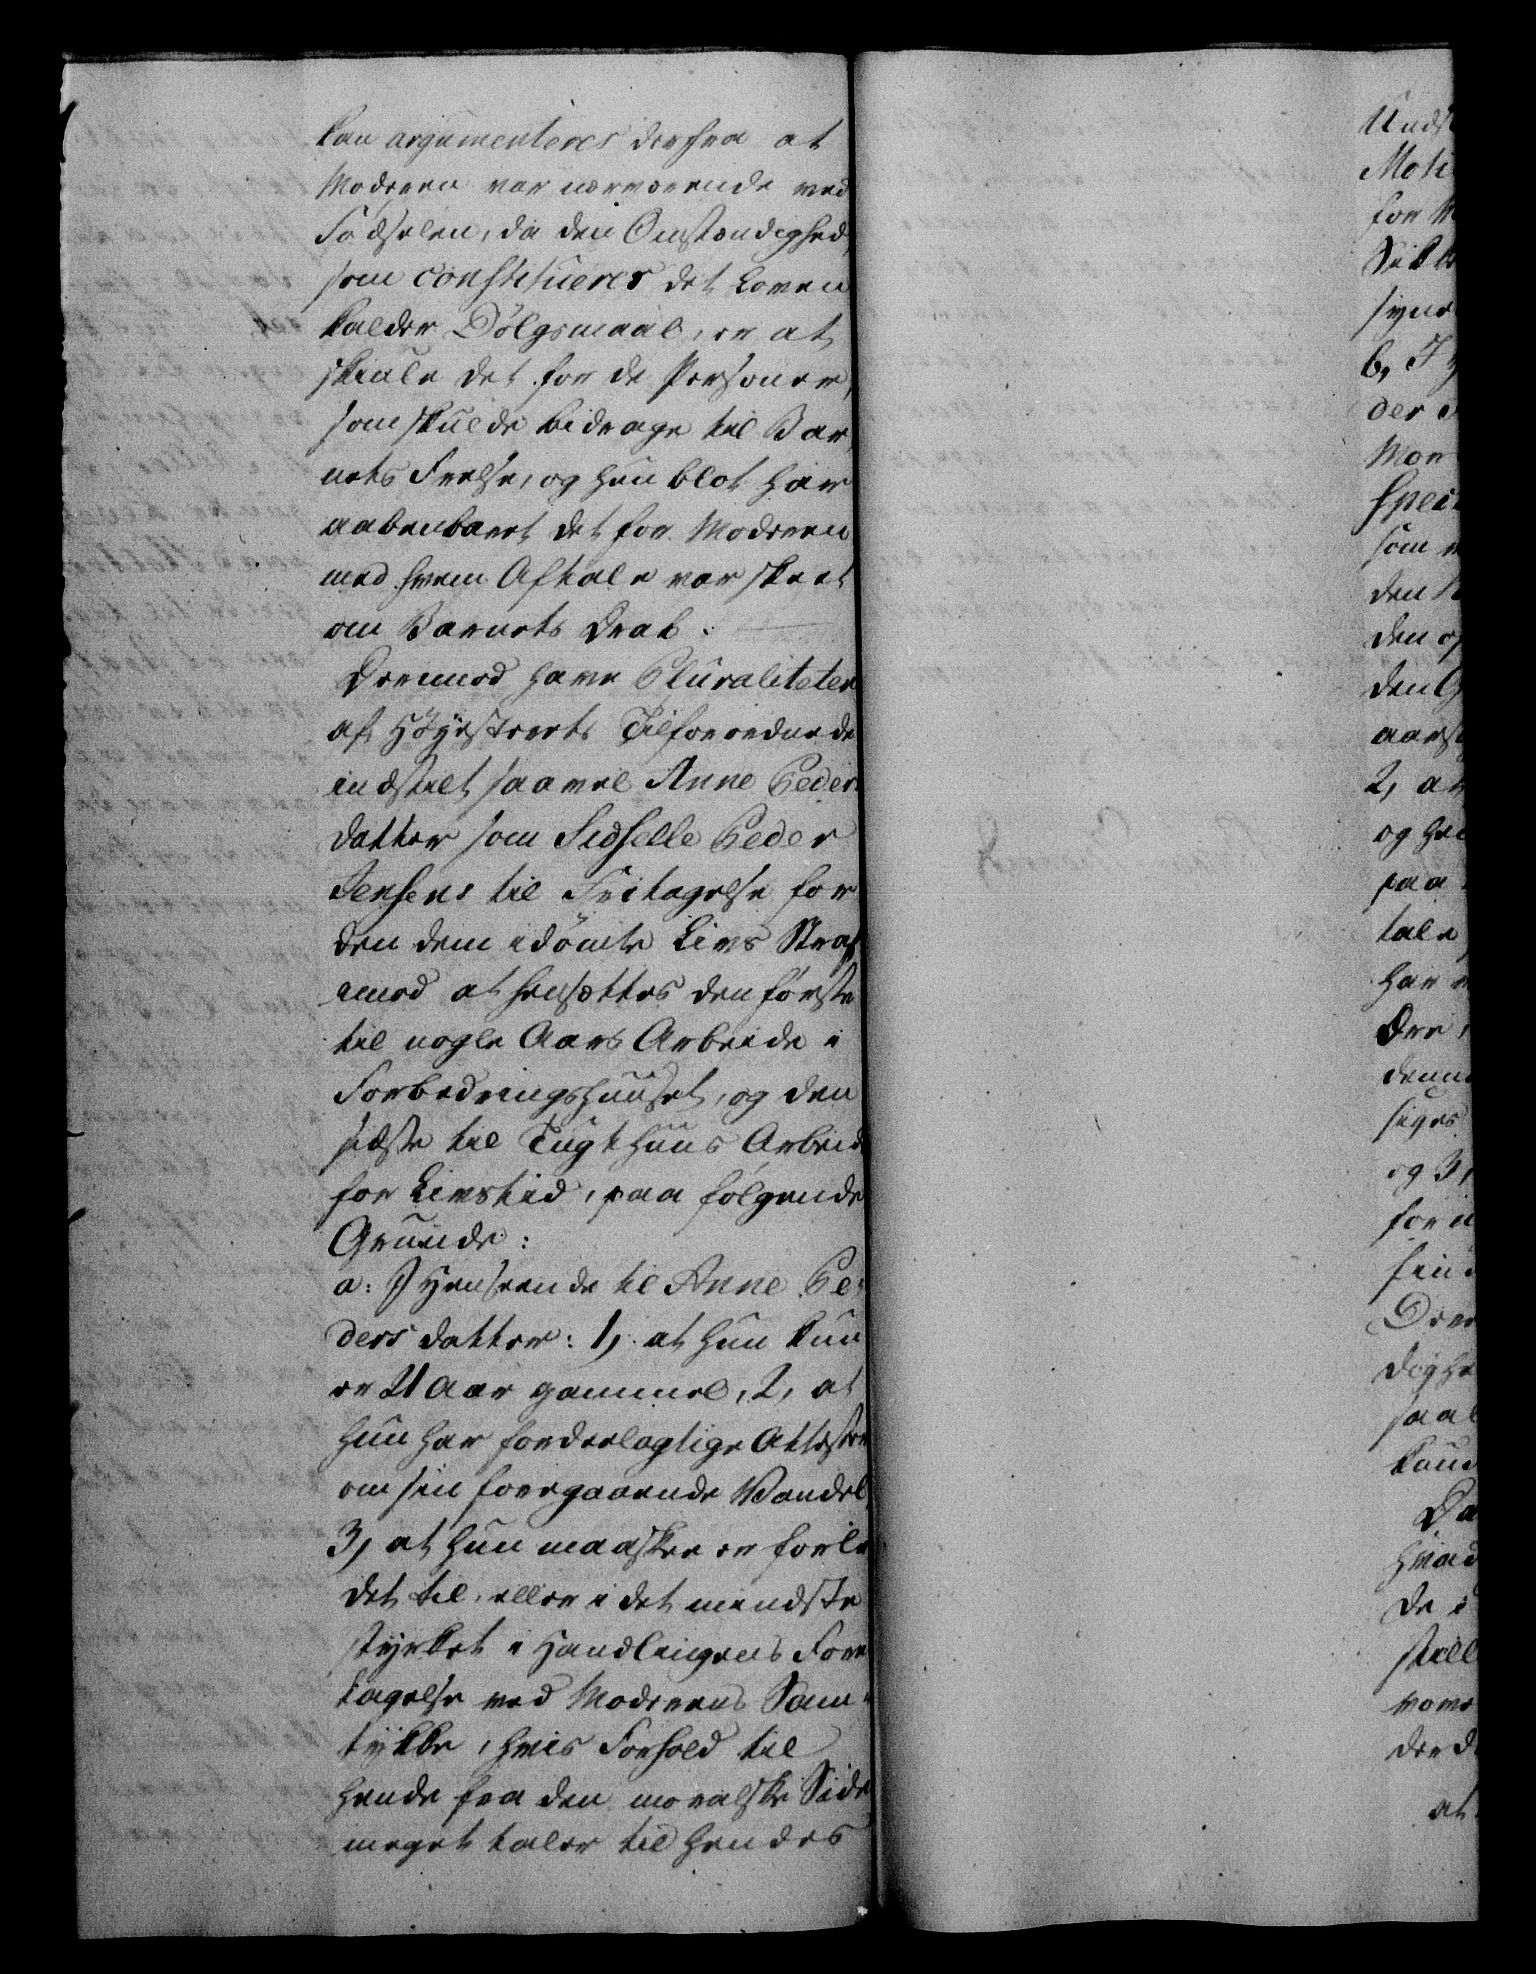 kan argumenteres derfra at
Moderen var nærværende ved
Fødselen, da den Omstændighed,
som constitueres det Loven
kalder Dølgsmaal, er at
skiule det for de Personer,
som skulde bidrage til Bar
nets Frelse, og hun blot har
aabenbaret det for Moderen
med hvem Aftale var skeet
om Barnets Drab.
Derimod have Pluraliteten
af Høyesterets Tilforordnede
indstilt saavel Anne Peders
datter som Sidselle Peder
Jensens til Fritagelse for
den dem idømte Livs Straf
imod at hensættes den første
til nogle Aars Arbeide i
Forbedringshuuset, og den
sidste til Tugthuus Arbeide
for Livstid, paa følgende
Grunde:
a: I Henseende til Anne Pe
ders datter: 1, at hun kun
er 21 Aar gammel, 2, at
hun har fordeelagtige Attester
om sin foregaaende Vandel,
3, at hun maaskee er forle
det til, eller i det mindste
styrket i Handlingens Fore
tagelse ved Moderens Sam
tykke, hvis Forhold til
hende fra den moralske Side
meget taler til hendes
Unds
Moti
for
syne
b, I
der
Mor
Spec
som
den
den op
den
aars
2, at
og
paa
tale
har
Der
denn
siges
og 3,
for
sin
Der
digh
saal
kun
Da
hvad
de i
still
vove
der
at